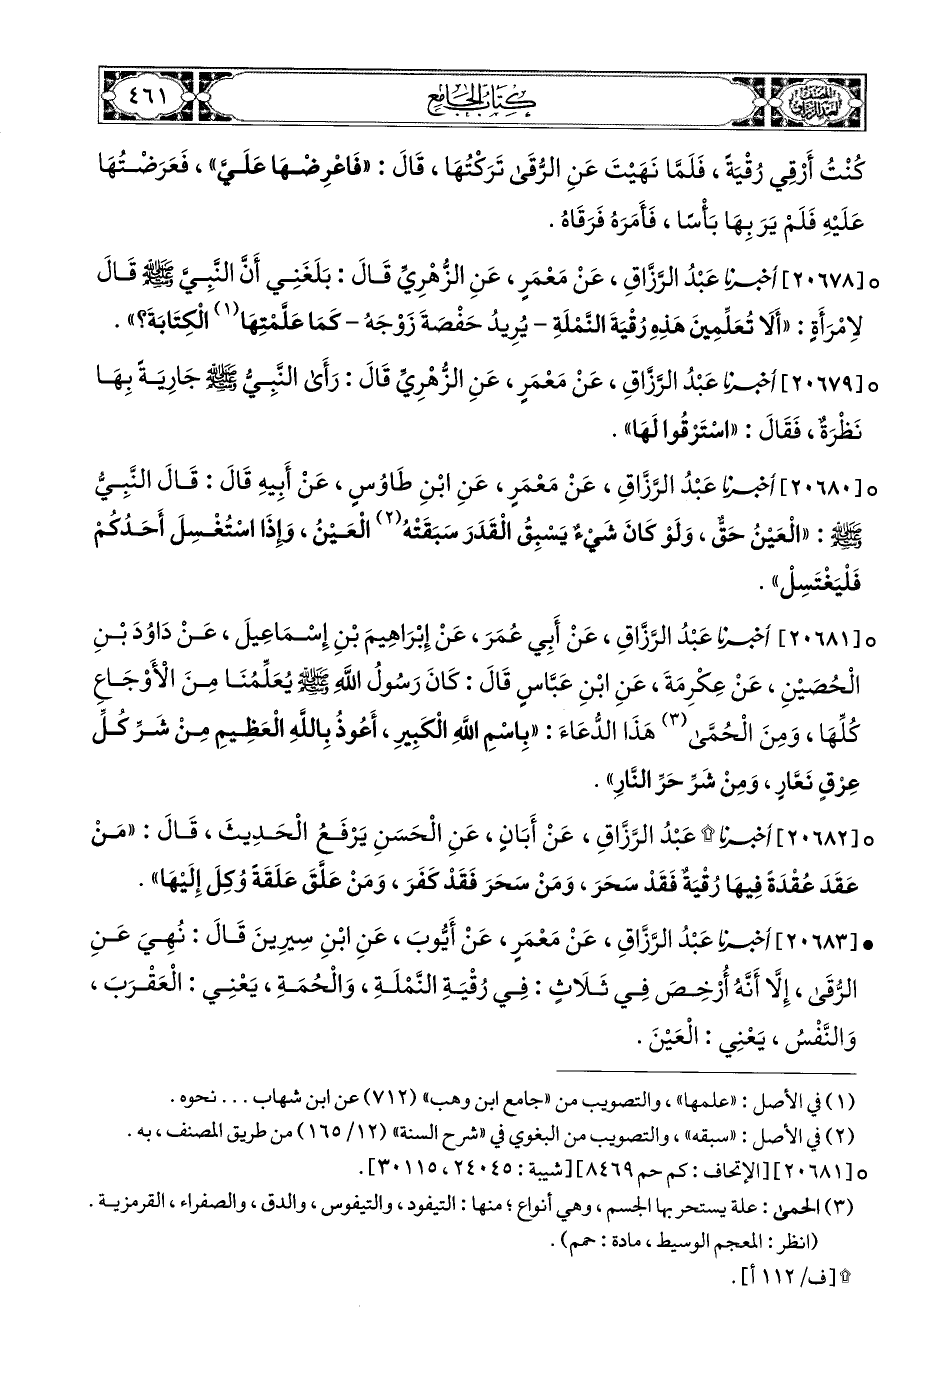 المصنف لعبد الرزاق
كتاب الجامع
٤٦١
كُنْتُ أَرْقِي رُقْيَةً ، فَلَمَّا نَهَيْتَ عَنِ الرُّقَىٰ تَرَكْتُهَا ، قَالَ : «فَاعْرِضْهَا عَلَيَّ» ، فَعَرَضْتُهَا
عَلَيْهِ فَلَمْ يَرَ بِهَا بَأْسًا ، فَأَمَرَهُ فَرَقَاهُ .
○ [٢٠٦٧٨] أخبرنا عَبْدُ الرَّزَّاقِ ، عَنْ مَعْمَرٍ ، عَنِ الزُّهْرِيِّ قَالَ : بَلَغَنِي أَنَّ النَّبِيَّ ﷺ قَالَ
لِامْرَأَةٍ : «أَلَا تُعَلِّمِينَ هَذِهِ رُقْيَةَ النَّمْلَةِ - يُرِيدُ حَفْصَةَ زَوْجَهُ - كَمَا عَلَّمْتِهَا(١) الْكِتَابَةَ؟» .
○ [٢٠٦٧٩] أخبرنا عَبْدُ الرَّزَّاقِ ، عَنْ مَعْمَرٍ ، عَنِ الزُّهْرِيِّ قَالَ : رَأَىٰ النَّبِيُّ ﷺ جَارِيَةً بِهَا
نَظْرَةٌ ، فَقَالَ : «اسْتَرْقُوا لَهَا» .
○ [٢٠٦٨٠] أخبرنا عَبْدُ الرَّزَّاقِ ، عَنْ مَعْمَرٍ ، عَنِ ابْنِ طَاوُسٍ ، عَنْ أَبِيهِ قَالَ : قَالَ النَّبِيُّ
ﷺ : «الْعَيْنُ حَقٌّ ، وَلَوْ كَانَ شَيْءٌ يَسْبِقُ الْقَدَرَ سَبَقَتْهُ(٢) الْعَيْنُ ، وَإِذَا اسْتُغْسِلَ أَحَدُكُمْ
فَلْيَغْتَسِلْ» .
○ [٢٠٦٨١] أخبرنا عَبْدُ الرَّزَّاقِ ، عَنْ أَبِي عُمَرَ ، عَنْ إِبْرَاهِيمَ بْنِ إِسْمَاعِيلَ ، عَنْ دَاوُدَ بْنِ
الْحُصَيْنِ ، عَنْ عِكْرِمَةَ ، عَنِ ابْنِ عَبَّاسٍ قَالَ : كَانَ رَسُولُ اللَّهِ ﷺ يُعَلِّمُنَا مِنَ الْأَوْجَاعِ
كُلِّهَا ، وَمِنَ الْحُمَّىٰ(٣) هَذَا الدُّعَاءَ : «بِاسْمِ اللَّهِ الْكَبِيرِ ، أَعُوذُ بِاللَّهِ الْعَظِيمِ مِنْ شَرِّ كُلِّ
عِرْقٍ نَعَّارٍ ، وَمِنْ شَرِّ حَرِّ النَّارِ» .
○ [٢٠٦٨٢] أخبرنا ۩ عَبْدُ الرَّزَّاقِ ، عَنْ أَبَانٍ ، عَنِ الْحَسَنِ يَرْفَعُ الْحَدِيثَ ، قَالَ : «مَنْ
عَقَدَ عُقْدَةً فِيهَا رُقْيَةٌ فَقَدْ سَحَرَ ، وَمَنْ سَحَرَ فَقَدْ كَفَرَ ، وَمَنْ عَلَّقَ عَلَقَةً وُكِلَ إِلَيْهَا» .
● [٢٠٦٨٣] أخبرنا عَبْدُ الرَّزَّاقِ ، عَنْ مَعْمَرٍ ، عَنْ أَيُّوبَ ، عَنِ ابْنِ سِيرِينَ قَالَ : نُهِيَ عَنِ
الرُّقَىٰ ، إِلَّا أَنَّهُ أُرْخِصَ فِي ثَلَاثٍ : فِي رُقْيَةِ النَّمْلَةِ ، وَالْحُمَةِ ، يَعْنِي : الْعَقْرَبَ ،
وَالنَّفْسُ ، يَعْنِي : الْعَيْنَ .
(١) في الأصل : «علمها» ، والتصويب من «جامع ابن وهب» (٧١٢) عن ابن شهاب . . . نحوه .
(٢) في الأصل : «سبقه» ، والتصويب من البغوي في «شرح السنة» (١٢/ ١٦٥) من طريق المصنف ، به .
○ [٢٠٦٨١] [الإتحاف : كم حم ٨٤٦٩] [شيبة : ٢٤٠٤٥ ، ٣٠١١٥] .
(٣) الحمىٰ : علة يستحر بها الجسم ، وهي أنواع ؛ منها : التيفود ، والتيفوس ، والدق ، والصفراء ، القرمزية .
(انظر : المعجم الوسيط ، مادة : حمم) .
۩ [ف/ ١١٢ أ] .